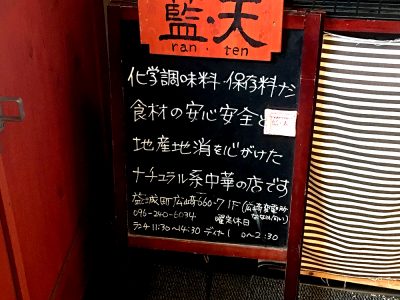 藍・天
ran・ten
化学調味料・保存料だ
食材の安心安全と
地産地消を心がけた
ナチュラル系中華の店です
益城町広崎660-7 1F
096-240-6034
曜定休日
ランチ11:30〜14:30 ディナー
0〜2:30